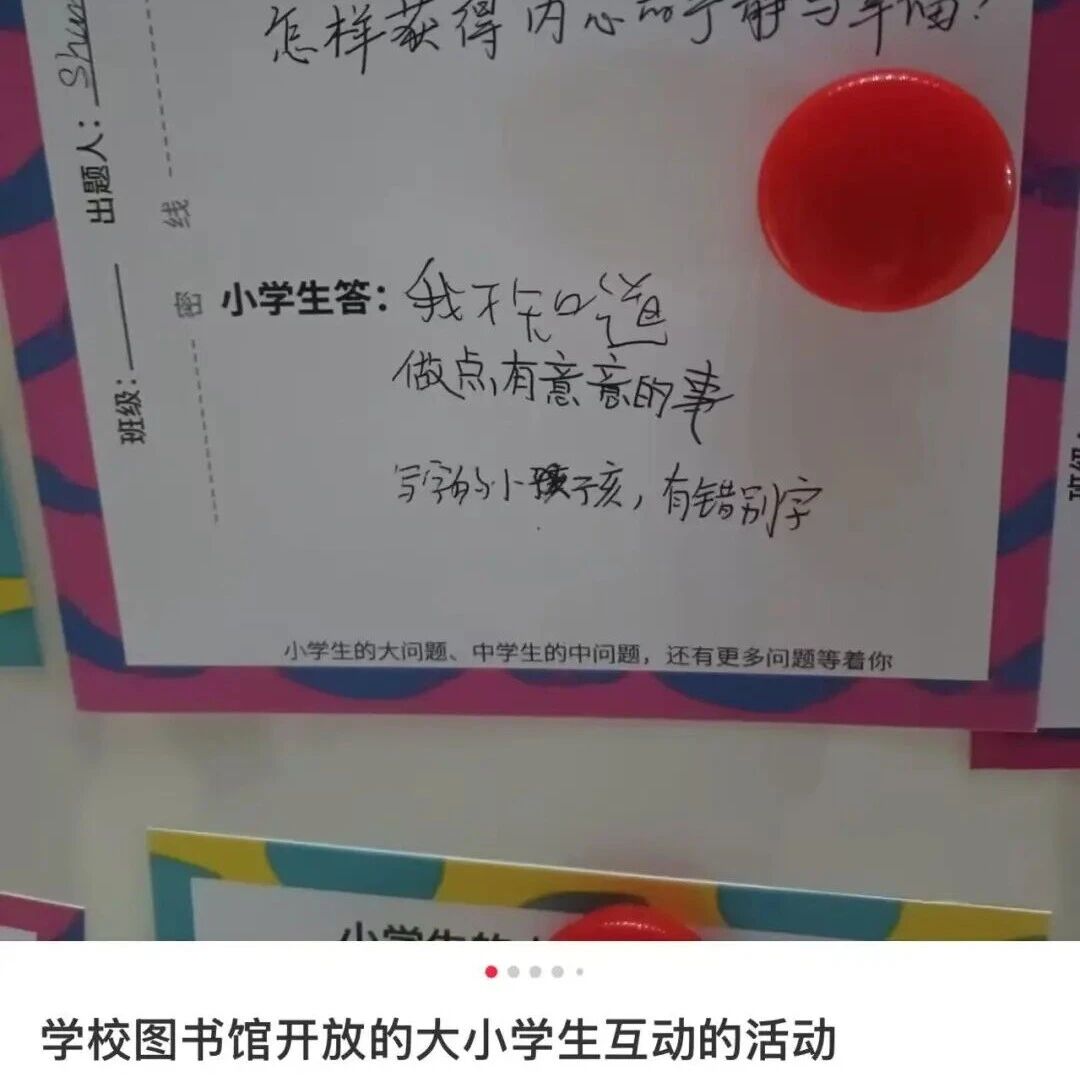 怎样获得内心的宁静与幸福？
出题人：Shun
线
密
班级：
小学生答：我不知道
做点有意意的事
写字的小孩，有错别字
小学生的大问题、中学生的中问题，还有更多问题等着你
小学生的
学校图书馆开放的大小学生互动的活动